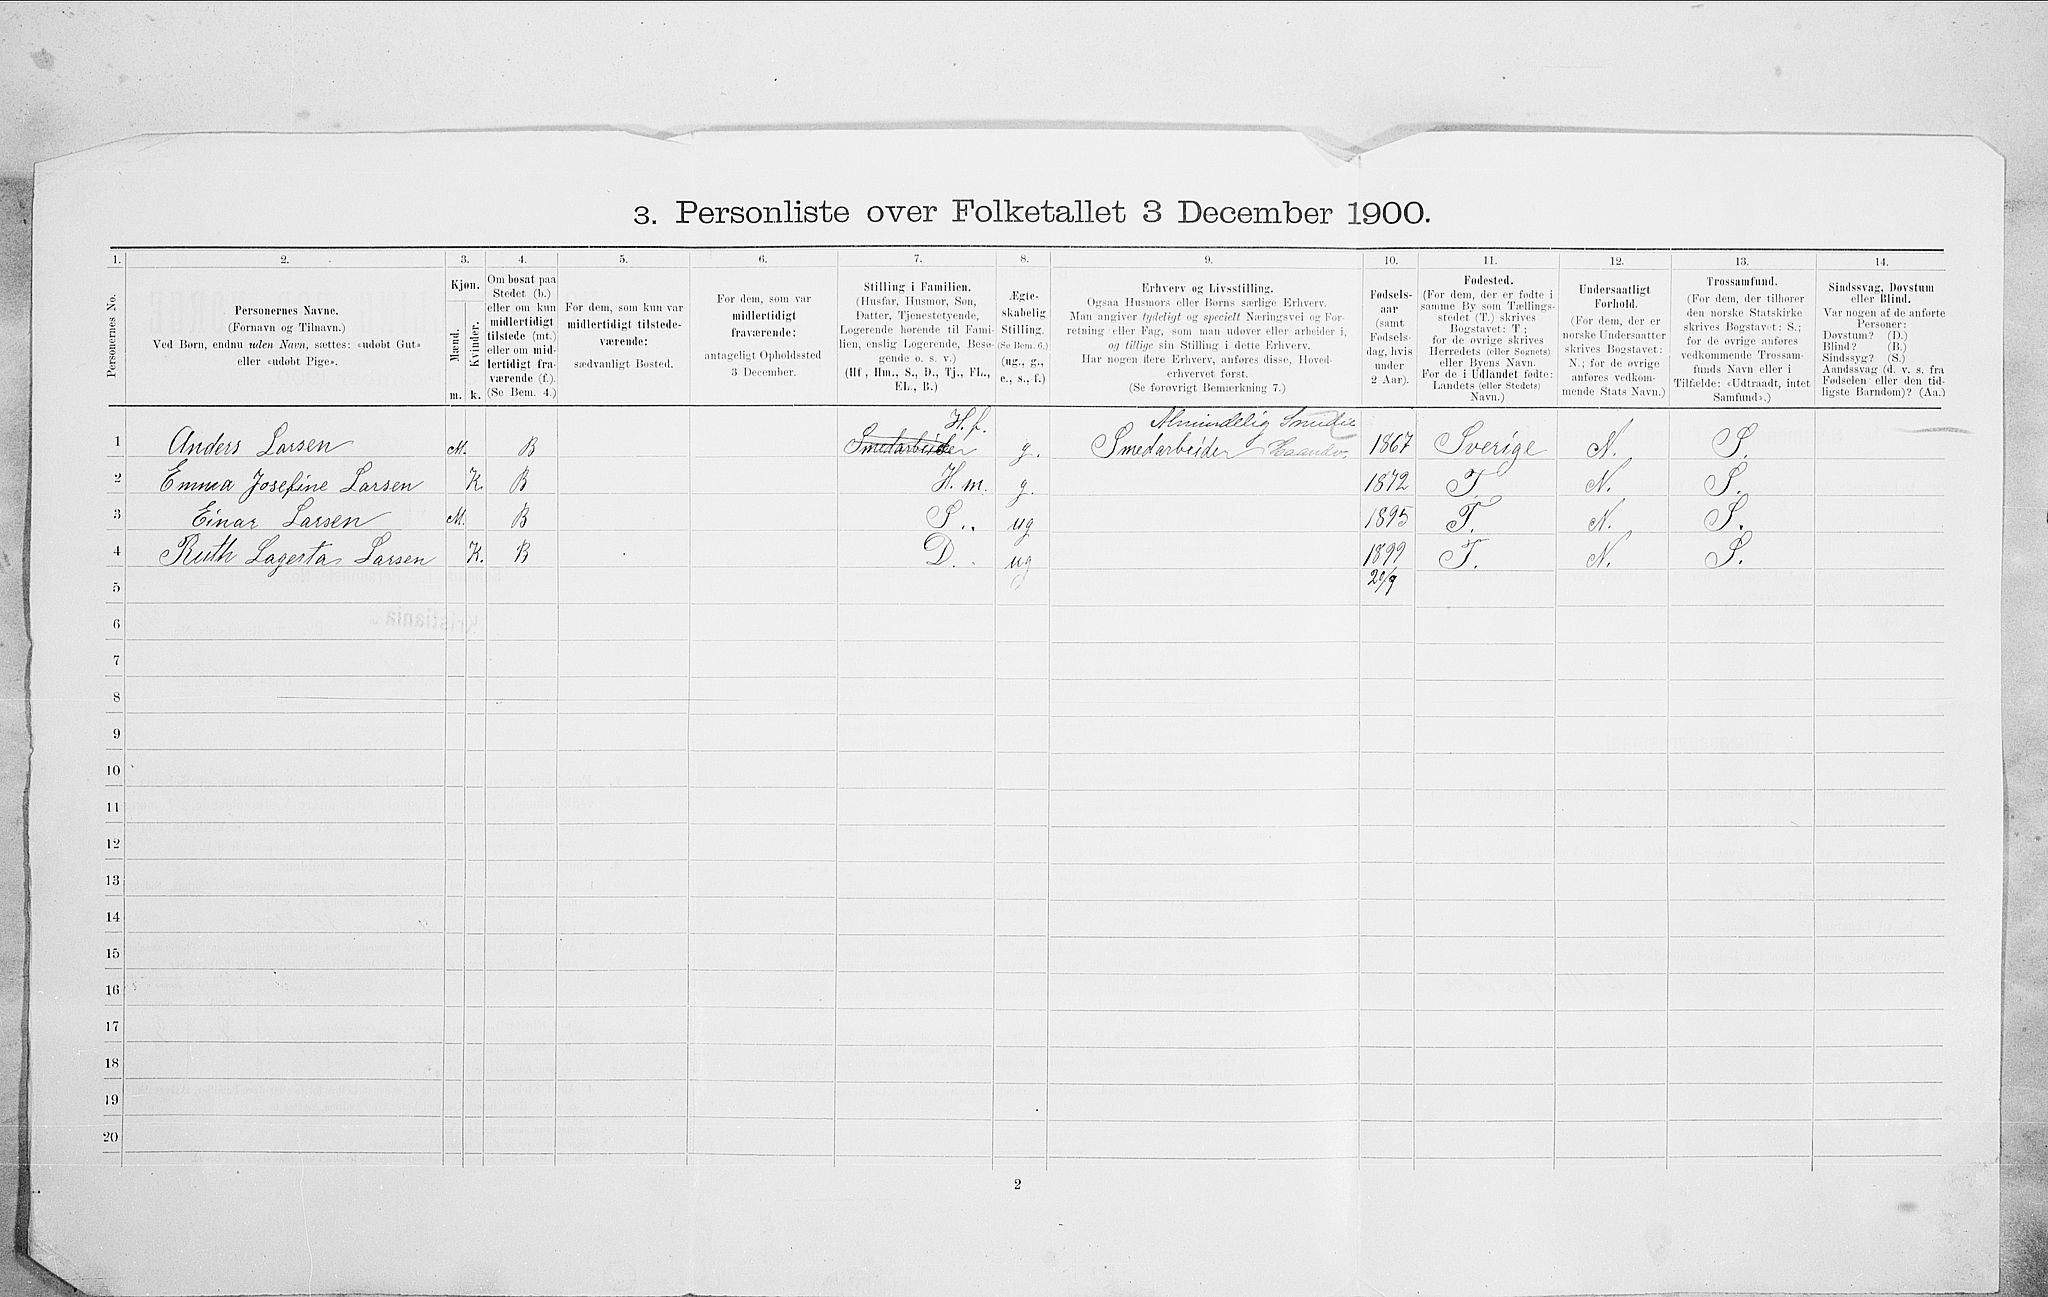 3. Personliste over Folketallet 3 December 1900.
1. 2. 3. 4. 5. 6. 7. 8. 9. 10. 11. 12. 13. 14.
Personernes No.
Personernes Navne.
(Fornavn og Tilnavn.)
Ved Børn, endnu uden Navn, sættes: «udøbt Gut»
eller «udøbt Pige».
Kjøn.
Mænd.
Kvinder.
m. k.
Om bosat paa
Stedet (b.)
eller om kun
midlertidigt
tilstede (mt.)
eller om mid-
lertidigt fra-
værende (f.)
(Se Bem. 4.)
For dem, som kun var
midlertidigt tilstede-
værende:
sædvanligt Bosted.
For dem, som var
midlertidigt
fraværende:
antageligt Opholdssted
3 December.
Stilling i Familien.
(Husfar, Husmor, Søn,
Datter, Tjenestetyende,
Logerende hørende til Fami-
lien, enslig Logerende, Besø-
gende o. s. v.)
(Hf., Hm., S., D., Tj., FL.,
EL., B.)
Ægte-
skabelig
Stilling.
(Se Bem. 6.)
(ug., g.,
e., s., f.)
Erhverv og Livsstilling.
Ogsaa Husmors eller Børns særlige Erhverv.
Man angiver tydeligt og specielt Næringsvei og For-
retning eller Fag, som man udøver eller arbeider i,
og tillige sin Stilling i dette Erhverv.
Har nogen flere Erhverv, anføres disse, Hoved-
erhvervet først.
(Se forøvrigt Bemærkning 7.)
Fødsels-
aar
(samt
Fødsels-
dag, hvis
under
2 Aar).
Fødested.
(For dem, der er fødte i
samme By som Tællings-
stedet (T.) skrives
Bogstavet: T.;
for de øvrige skrives
Herredets (eller Sognets)
eller Byens Navn.
For de i Udlandet fødte:
Landets (eller Stedets)
Navn.)
Undersaatligt
Forhold.
(For dem, der er
norske Undersaatter
skrives Bogstavet:
N.; for de øvrige
anføres vedkom-
mende Stats Navn.)
Trossamfund.
(For dem, der tilhører
den norske Statskirke
skrives Bogstavet: S.;
for de øvrige anføres
vedkommende Trossam-
funds Navn eller i
Tilfælde: «Udtraadt, intet
Samfund».)
Sindssvag, Døvstum
eller Blind.
Var nogen af de anførte
Personer:
Døvstum? (D.)
Blind? (B.)
Sindssyg? (S.)
Aandssvag (d. v. s. fra
Fødselen eller den tid-
ligste Barndom)? (Aa.)
H. f. Almindelig Smedie
1 Anders Larsen M. B Smedarbeider g. Smedarbeider Haandv. 1867 Sverige N. S.
2 Emma Josefine Larsen K. B H. m. g. 1872 T. N. S.
3 Einar Larsen M. B S. ug 1895 T. N. S.
4 Ruth Lagerta Larsen K. B D. ug 1899 T. N. S.
5 20/9
6
7
8
9
10
11
12
13
14
15
16
17
18
19
20
2